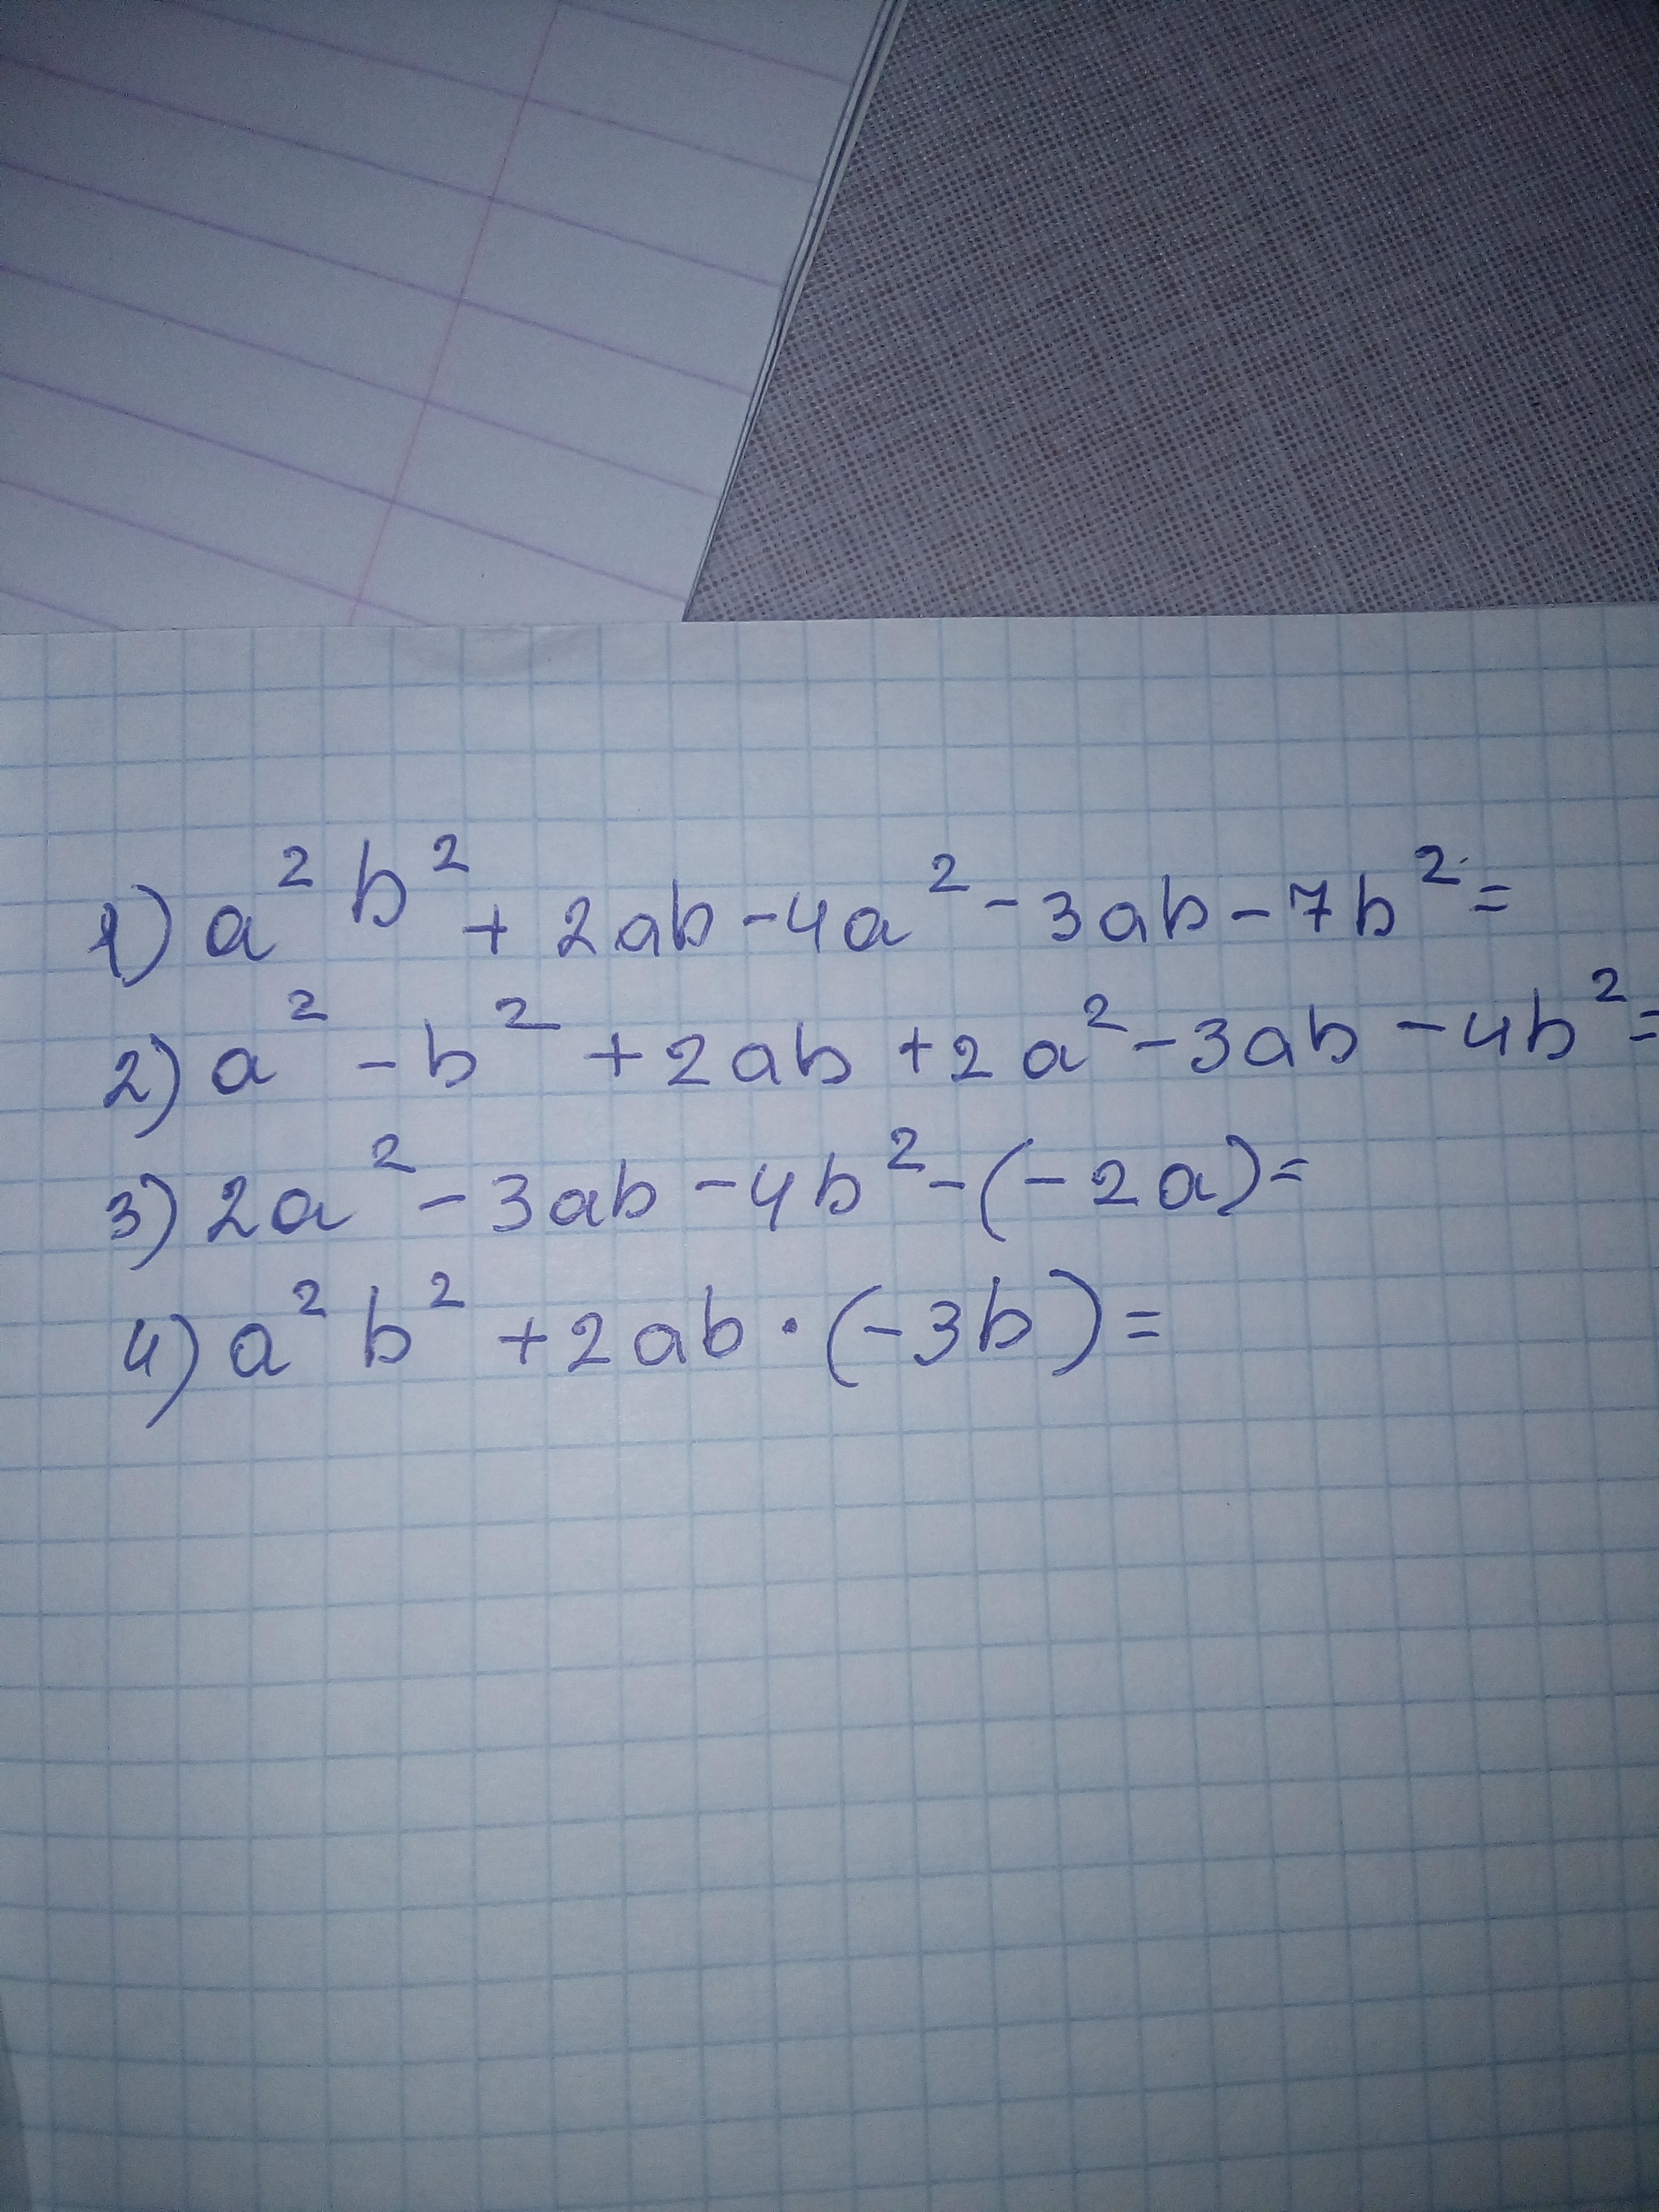 1) a² b² + 2ab - 4a² - 3ab - 7b² =
2) a² - b² + 2ab + 2a² - 3ab - 4b² =
3) 2a² - 3ab - 4b² - (-2a) =
4) a² b² + 2ab · (-3b) =